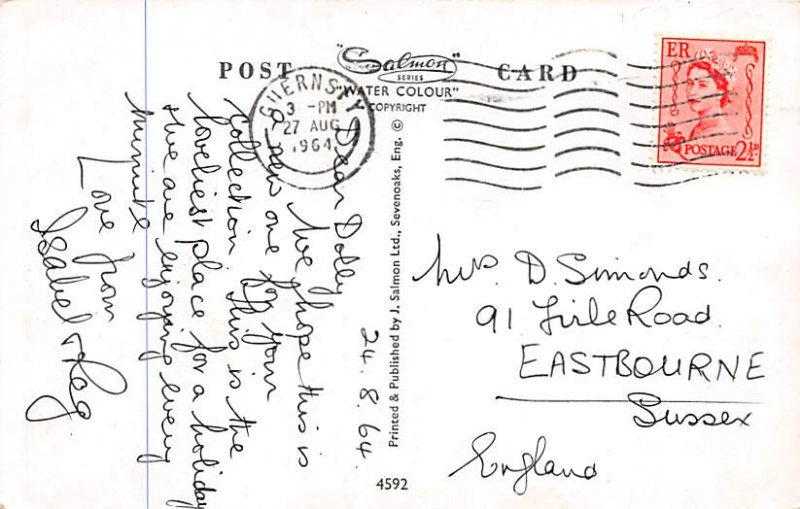 POST CARD
"Salmon"
SERIES
"WATER COLOUR"
COPYRIGHT
GUERNSEY
3 - PM
27 AUG
1964
ER
POSTAGE 2½D
24.8.64
Dear Dolly
We hope this is
a new one for your
collection. This is the
loveliest place for a holiday
& we are enjoying every
minute
Love from
Isabel & Reg
Printed & Published by J. Salmon Ltd., Sevenoaks, Eng. ©
4592
Mrs. D. Simonds.
91 Firle Road.
EASTBOURNE
Sussex
England